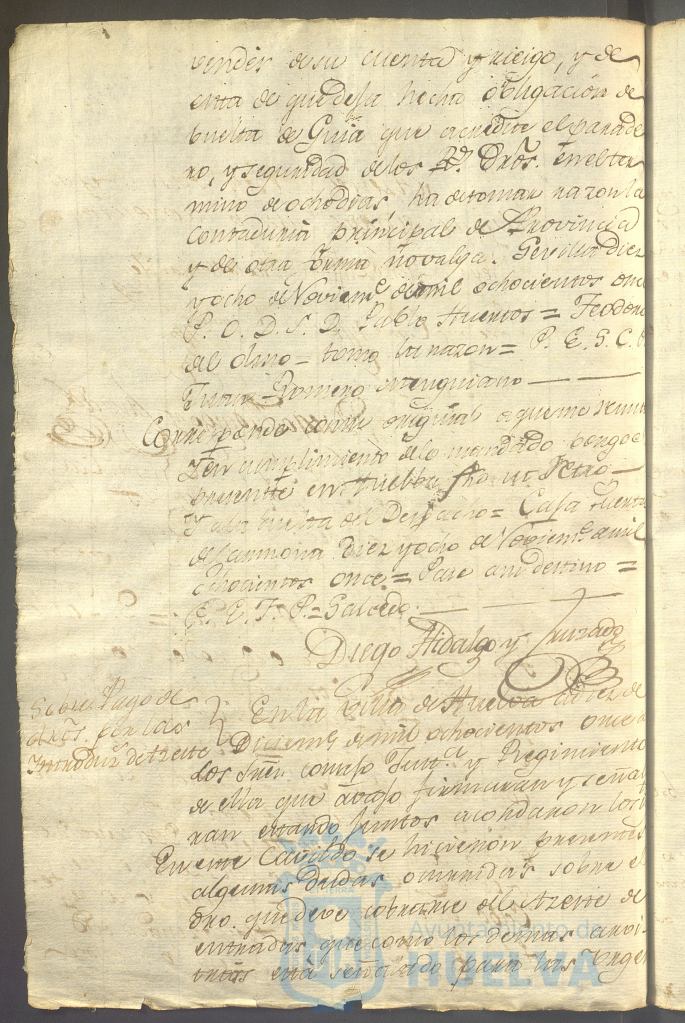 vender de su cuenta y riesgo, y de
esta de quedefa hecha obligación de
buelta de Guia que acredite el parade
ro, y seguridad delos Rs. Dros. en el ter
mino de ocho dias ha detomar razon la
Contaduria principal de Provincia
y de otra forma no valga. Sevilla Diez
yocho de Noviemᵉ de mil ochocientos once
P. O. D. S. D. Pablo Huertos = Teodoro
del olmo = tomo la razon = P. E. S. C. P.
Juan Romero
Corresponde con su original a que me remito
Y en cumplimiento de lo mandado pongo el
presente en Huelba fho ut Retro—
Y a la buelta del Despacho = Casa Puerta
de Carmona Diez yocho de Noviemᵉ de mil
ochocientos once = Pase a su destino =
E. E. F. P. = Salcedo.
Diego Hidalgo y Cruzado
Sobre Pago de
dros. por las
Introduz. de Azeite
En la Villa de Huelva a diez de
Diciemᵉ de mil ochocientos once
los Sres. Consejo Justᵃ y Regimiento
de ella que avajo firmaran y señala
ran estando juntos acordaron lo sigᵗᵉ
En este Cavildo se hicieron presentes
algunas dudas ocurridas sobre el
dro. que deve cobrarse del Azeite de
entradas, que como los demas arvi-
trios está señalado para las Urgen
Ayuntamiento de
HUELVA